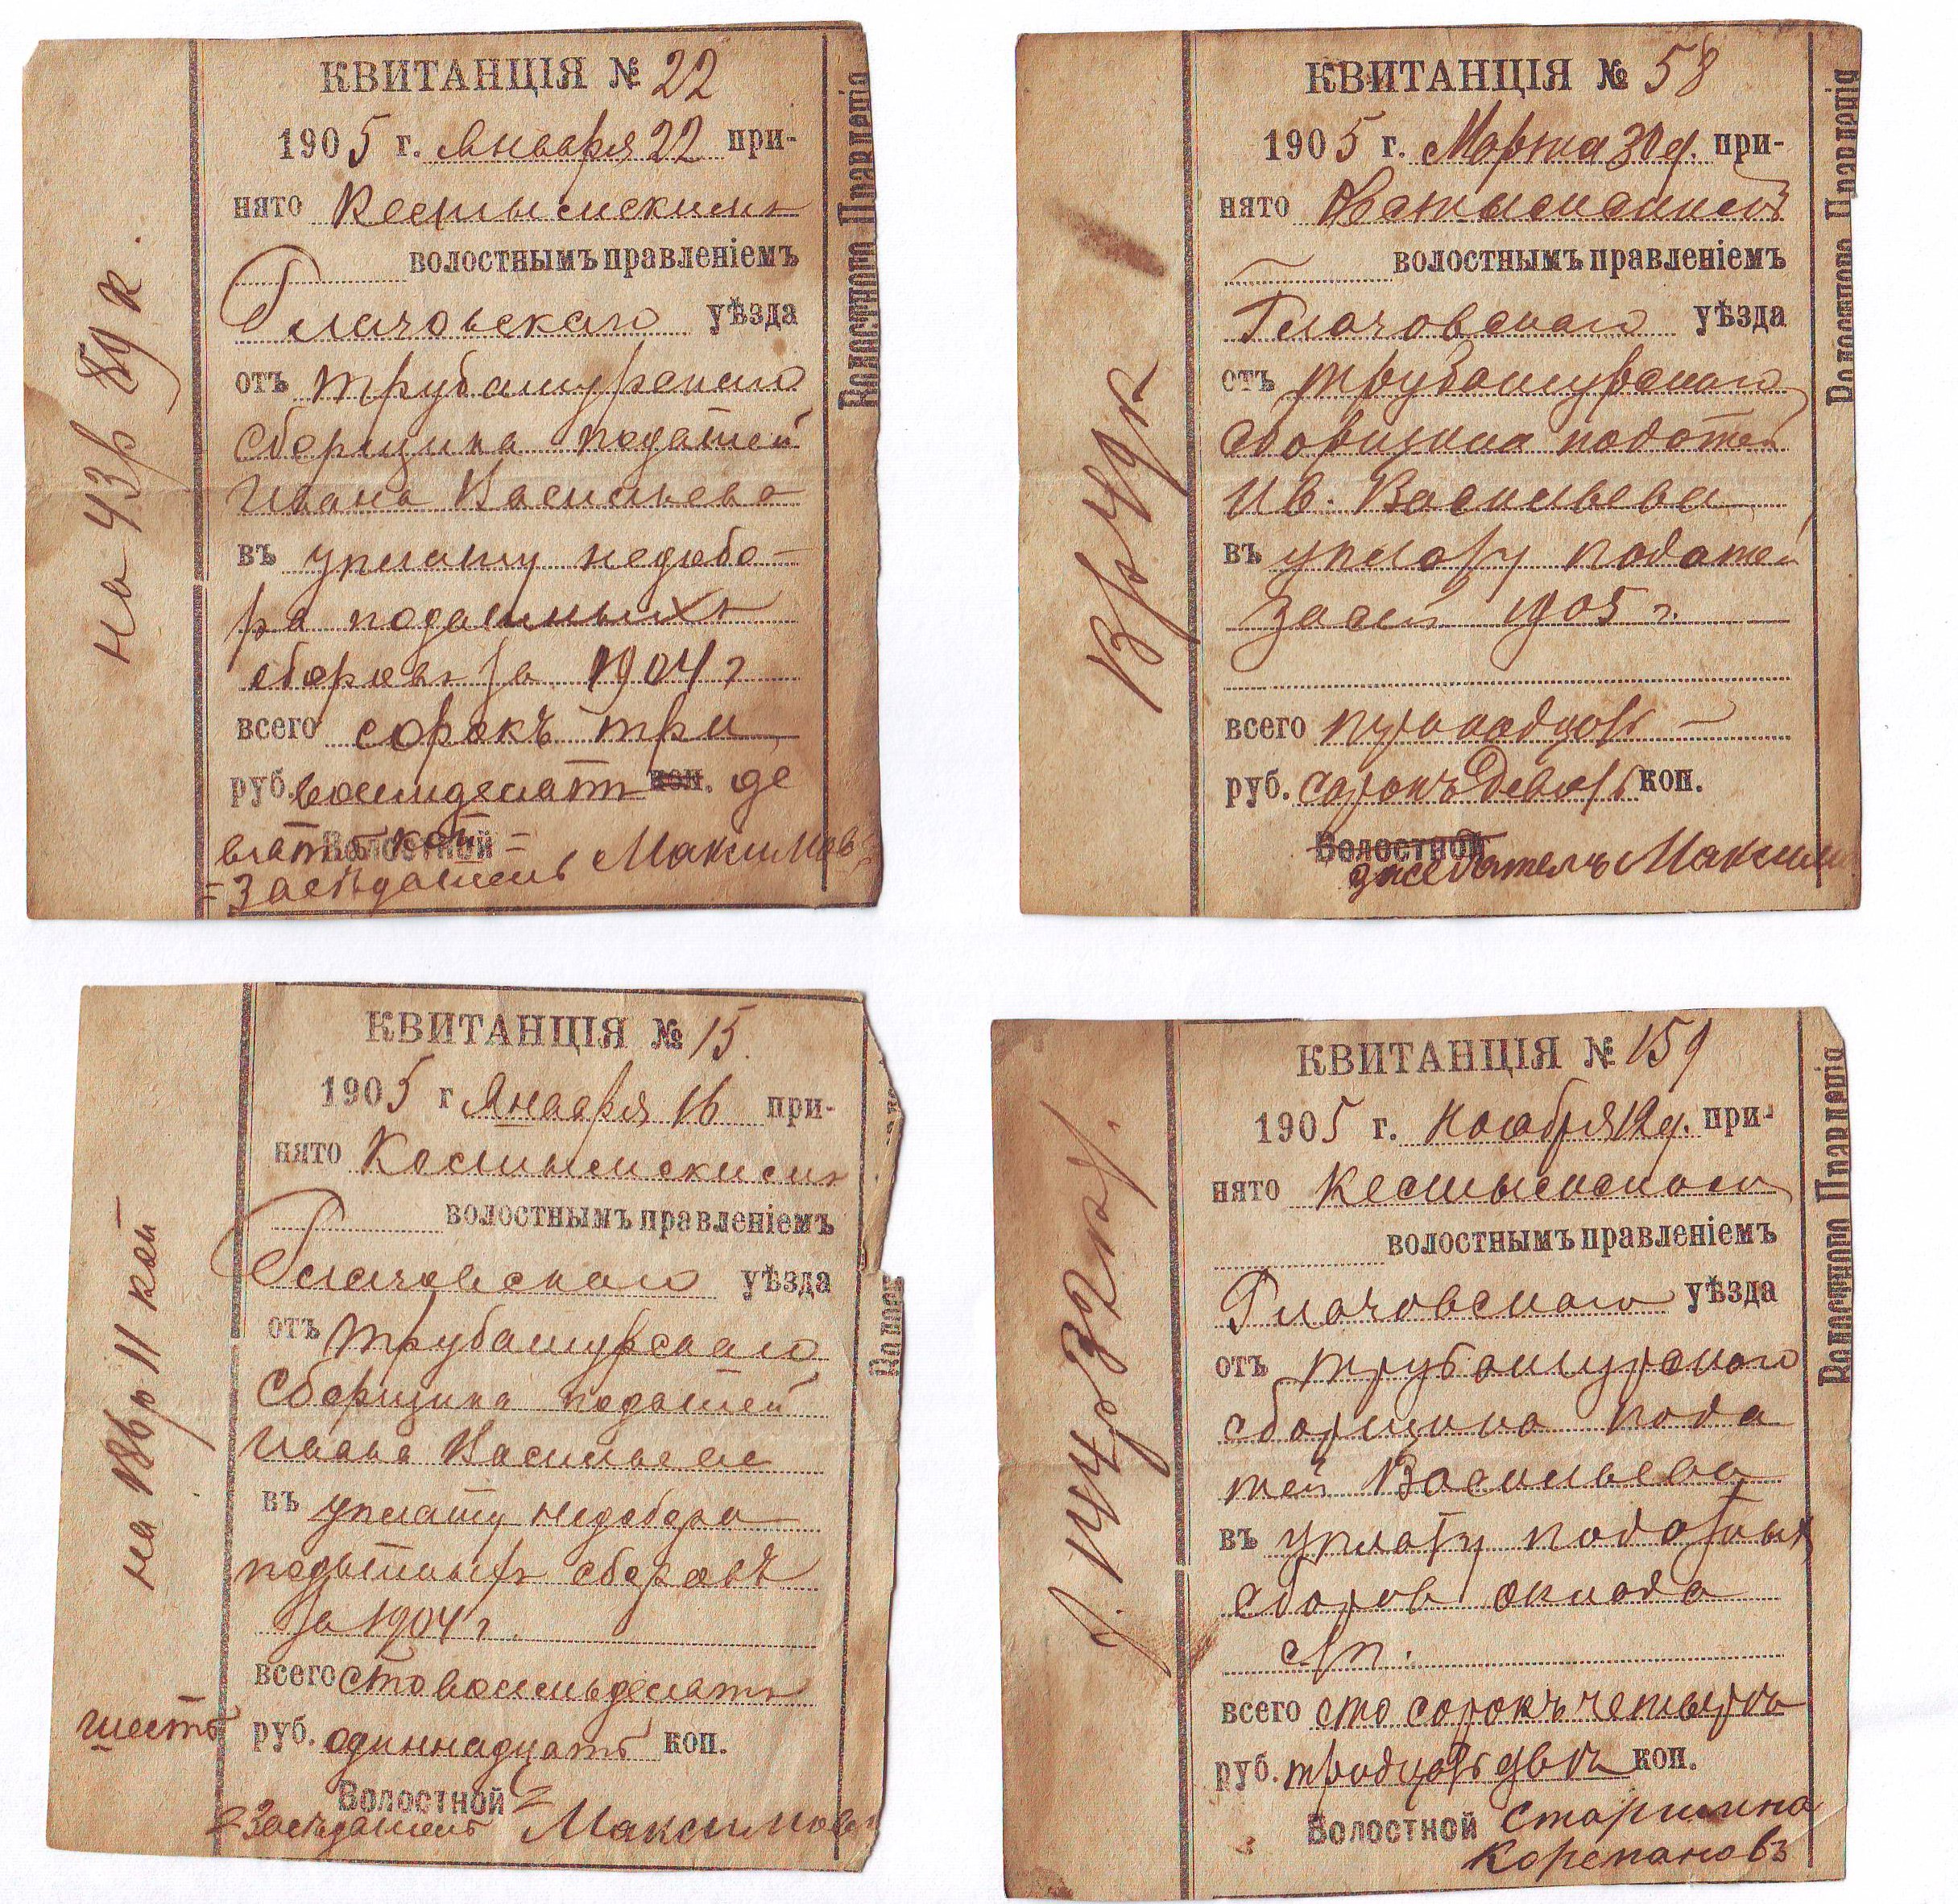 КВИТАНЦІЯ № 22
1905 г. Января 22 при-
нято Кестымскимъ
волостнымъ правленіемъ
Глазовскаго уѣзда
отъ Трубашурскаго
сборщика податей
Ивана Васильева
въ уплату недобо-
ра податныхъ
сборовъ за 1904 г
всего сорокъ три
руб. восемдесятъ коп. де
вять коп =
Волостной
= Засѣдатель Максимовъ
на 43 р 89 к.
Волостного Правленія
КВИТАНЦІЯ № 58
1905 г. Марта 30 д. при-
нято Кестымскимъ
волостнымъ правленіемъ
Глазовскаго уѣзда
отъ Трубашурскаго
сборщика податей
Ив. Васильева
въ уплату податей
за 1905 г.
всего
руб. сорокъ девять коп.
Волостной
Заседатель Максим
49 к
Волостного Правленія
КВИТАНЦІЯ № 15.
1905 г Января 16 при-
нято Кестымскимъ
волостнымъ правленіемъ
Глазовскаго уѣзда
отъ Трубашурскаго
Сборщика податей
Ивана Васильева
въ уплату недобора
податныхъ сборовъ
за 1904 г.
всего сто восемьдесятъ
шесть
руб. одиннадцать коп.
Волостной
= Засѣдатель Максимовъ
на 186 р 11 коп
Волос
КВИТАНЦІЯ № 159
1905 г. Ноября 12 д. при-
нято Кестымскимъ
волостнымъ правленіемъ
Глазовскаго уѣзда
отъ Трубашурскаго
сборщика пода
тей Васильева
въ уплату податных
сборов оклада
с/г.
всего сто сорокъ четыре
руб. тридцать двѣ коп.
Волостной Старшина
Корепановъ
144 р 32 коп.
Волостного Правленія